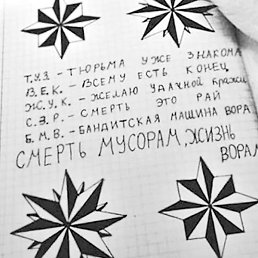 Т.У.З. - ТЮРЬМА УЖЕ ЗНАКОМА
В.Е.К. - ВСЕМУ ЕСТЬ КОНЕЦ
Ж.У.К. - ЖЕЛАЮ УДАЧНОЙ КРАЖИ
С.Э.Р. - СМЕРТЬ ЭТО РАЙ
Б.М.В. - БАНДИТСКАЯ МАШИНА ВОРА
СМЕРТЬ МУСОРАМ, ЖИЗНЬ
ВОРАМ